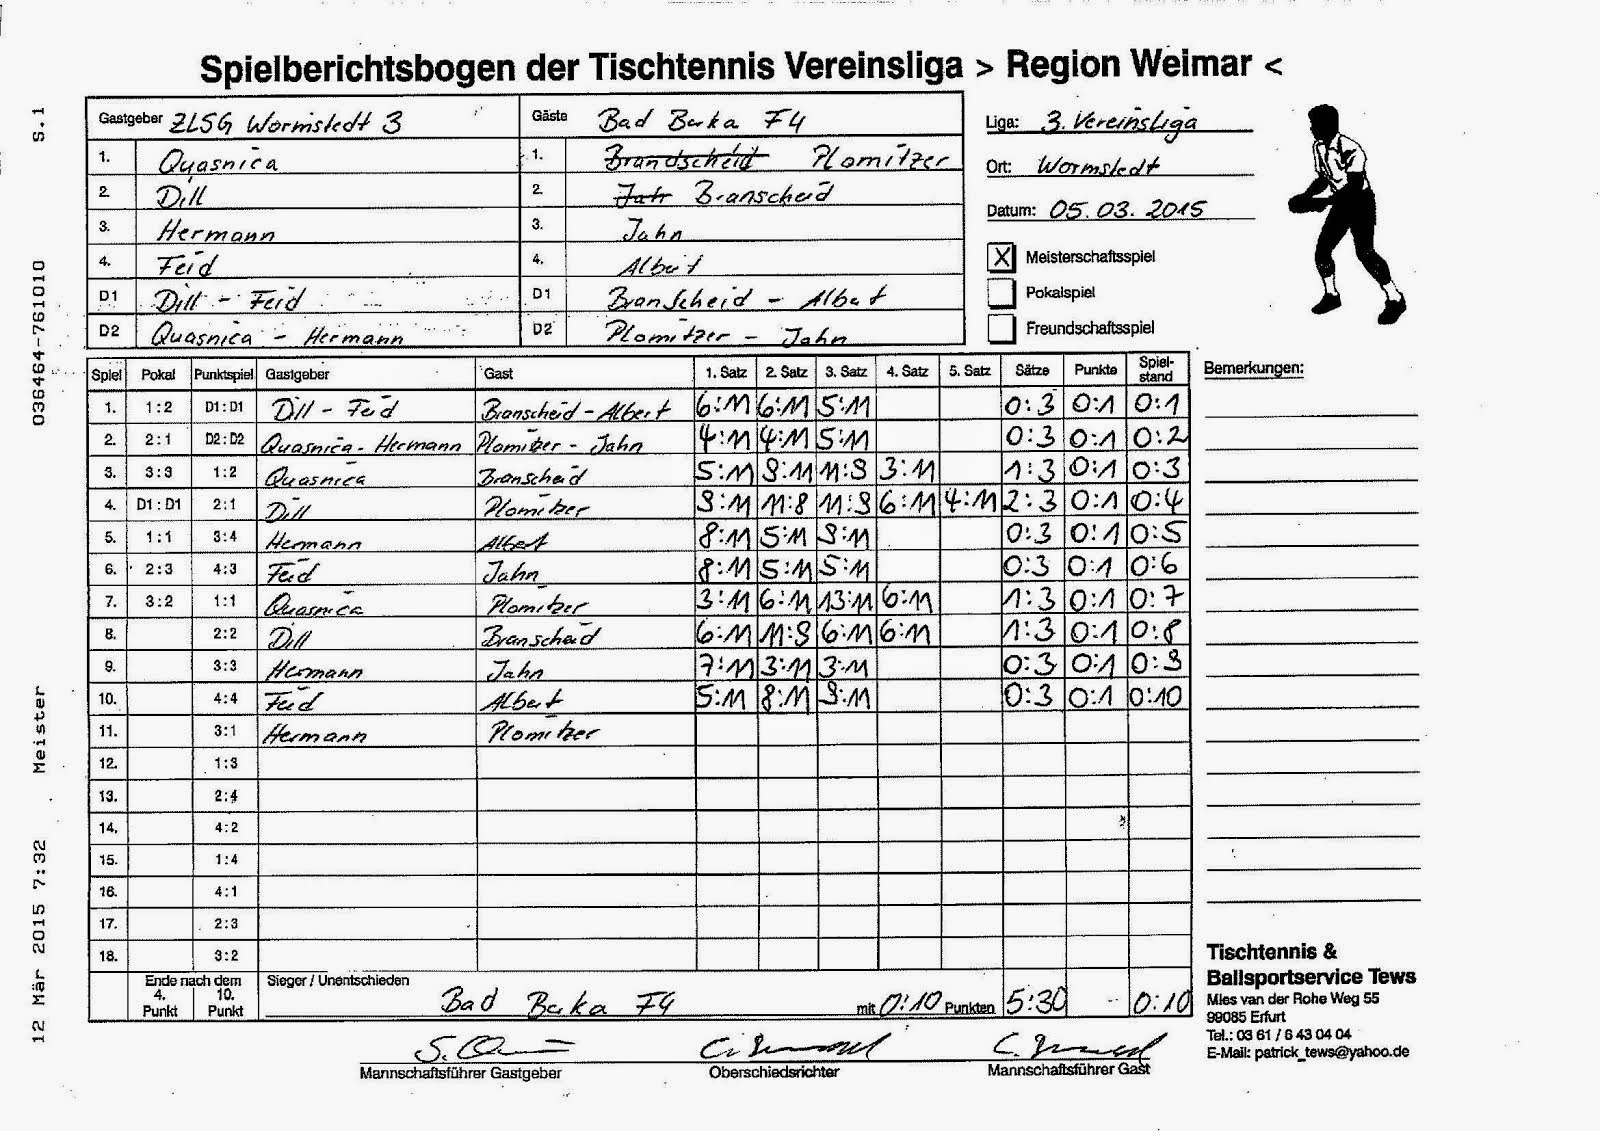 Spielberichtsbogen der Tischtennis Vereinsliga > Region Weimar <
Gastgeber ZLSG Wormstedt 3 Gäste Bad Berka F4
1. Quasnica 1. Brandscheid Plomitzer
2. Dill 2. Jahr Branscheid
3. Hermann 3. Jahn
4. Feid 4. Albert
D1 Dill - Feid D1 Branscheid - Albert
D2 Quasnica - Hermann D2 Plomitzer - Jahn
Liga: 3. Vereinsliga
Ort: Wormstedt
Datum: 05.03.2015
X Meisterschaftsspiel
Pokalspiel
Freundschaftsspiel
Spiel Pokal Punktspiel Gastgeber Gast 1. Satz 2. Satz 3. Satz 4. Satz 5. Satz Sätze Punkte Spiel-stand Bemerkungen:
1. 1:2 D1:D1 Dill - Feid Branscheid - Albert 6:11 6:11 5:11 0:3 0:1 0:1
2. 2:1 D2:D2 Quasnica - Hermann Plomitzer - Jahn 4:11 4:11 5:11 0:3 0:1 0:2
3. 3:3 1:2 Quasnica Branscheid 5:11 9:11 11:9 3:11 1:3 0:1 0:3
4. D1:D1 2:1 Dill Plomitzer 9:11 11:8 11:9 6:11 4:11 2:3 0:1 0:4
5. 1:1 3:4 Hermann Albert 8:11 5:11 9:11 0:3 0:1 0:5
6. 2:3 4:3 Feid Jahn 8:11 5:11 5:11 0:3 0:1 0:6
7. 3:2 1:1 Quasnica Plomitzer 3:11 6:11 13:11 6:11 1:3 0:1 0:7
8. 2:2 Dill Branscheid 6:11 11:9 6:11 6:11 1:3 0:1 0:8
9. 3:3 Hermann Jahn 7:11 3:11 3:11 0:3 0:1 0:9
10. 4:4 Feid Albert 5:11 8:11 9:11 0:3 0:1 0:10
11. 3:1 Hermann Plomitzer
12. 1:3
13. 2:4
14. 4:2
15. 1:4
16. 4:1
17. 2:3
18. 3:2
Ende nach dem
4. Punkt 10. Punkt
Sieger / Unentschieden Bad Berka F4 mit 0:10 Punkten 5:30 -- 0:10
Mannschaftsführer Gastgeber Oberschiedsrichter Mannschaftsführer Gast
Tischtennis &
Ballsportservice Tews
Mies van der Rohe Weg 55
99085 Erfurt
Tel.: 03 61 / 6 43 04 04
E-Mail: patrick_tews@yahoo.de
12 Mär 2015 7:32 Meister 036464-761010 S.1